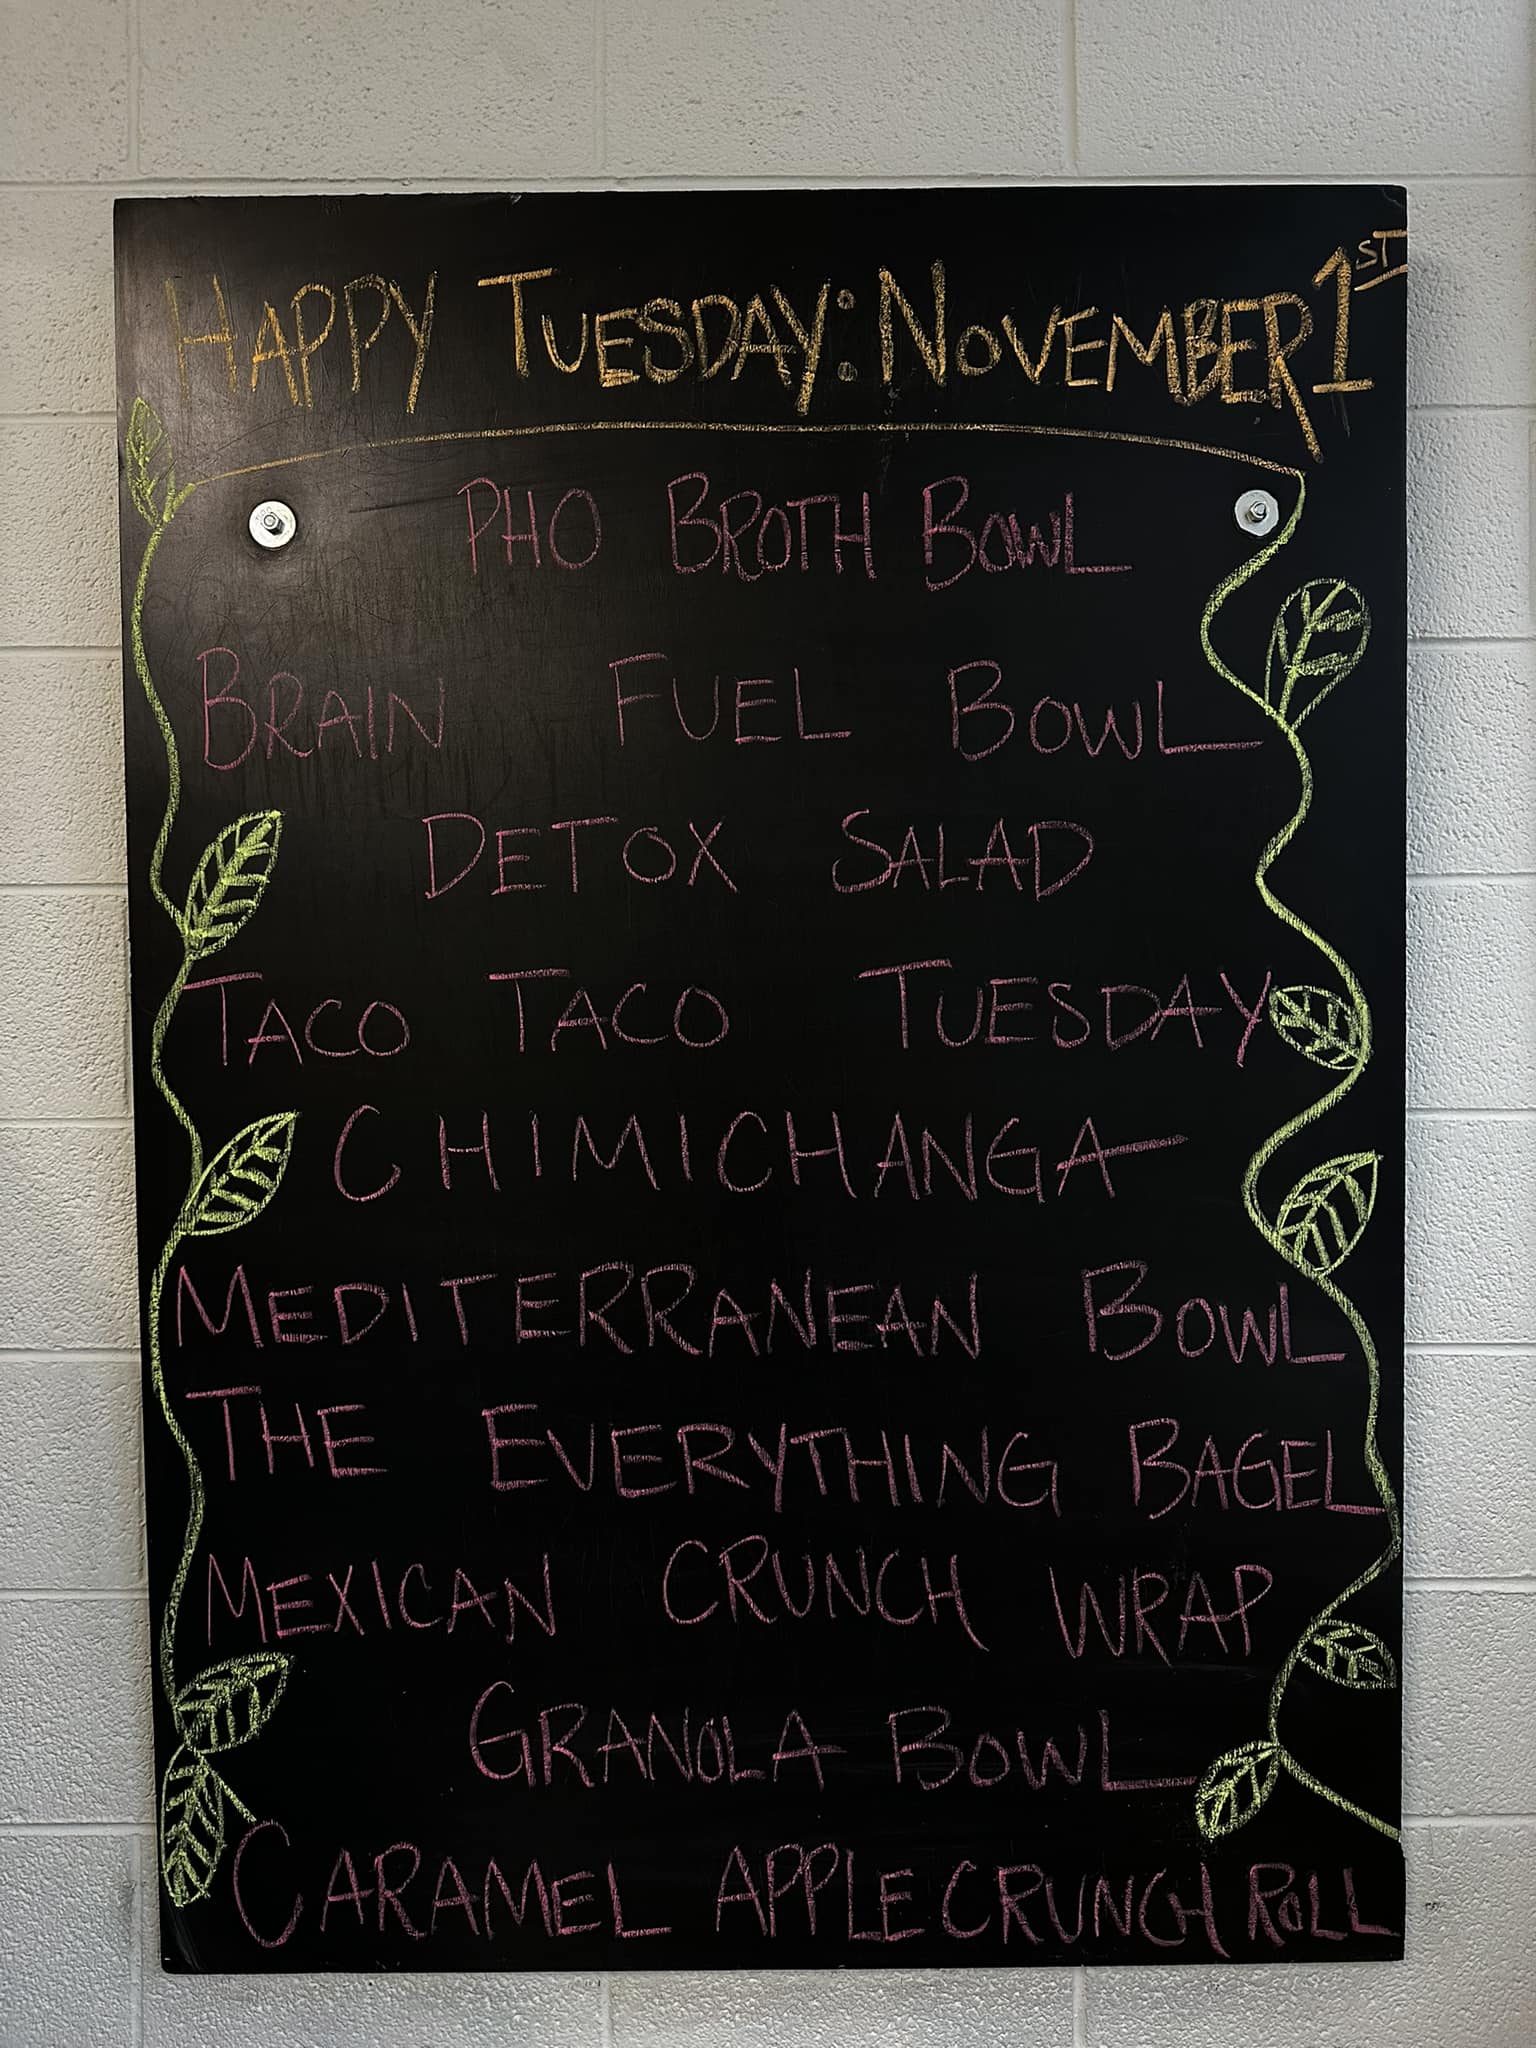 HAPPY TUESDAY: NOVEMBER 1ST
PHO BROTH BOWL
BRAIN FUEL BOWL
DETOX SALAD
TACO TACO TUESDAY
CHIMICHANGA
MEDITERRANEAN BOWL
THE EVERYTHING BAGEL
MEXICAN CRUNCH WRAP
GRANOLA BOWL
CARAMEL APPLE CRUNCH ROLL